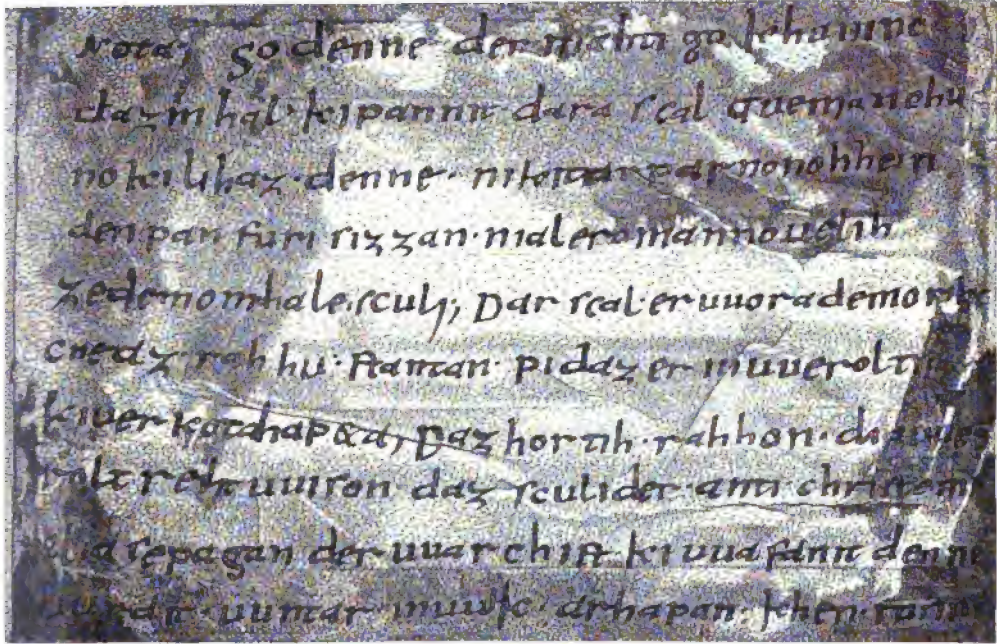 So denne der mahti go khuninc
daz mhal kipannit dara scal quemanehu
no kilihaz · denne · nikitar parnonohhein
den pan furi sizzan · nialleromannouelih
zedemomhale · sculi; Dar scal · er uuorademo
az rahhu · stantan · pidaz er inuuerolti
kiuerkotahap&a; Daz hortih · rahhon · dia uue
rolt rehtuuison daz sculider anti christo
pagan der uuarch ist kiuuafanit denne
uuirdit · untar inuuic · arhapan · khen